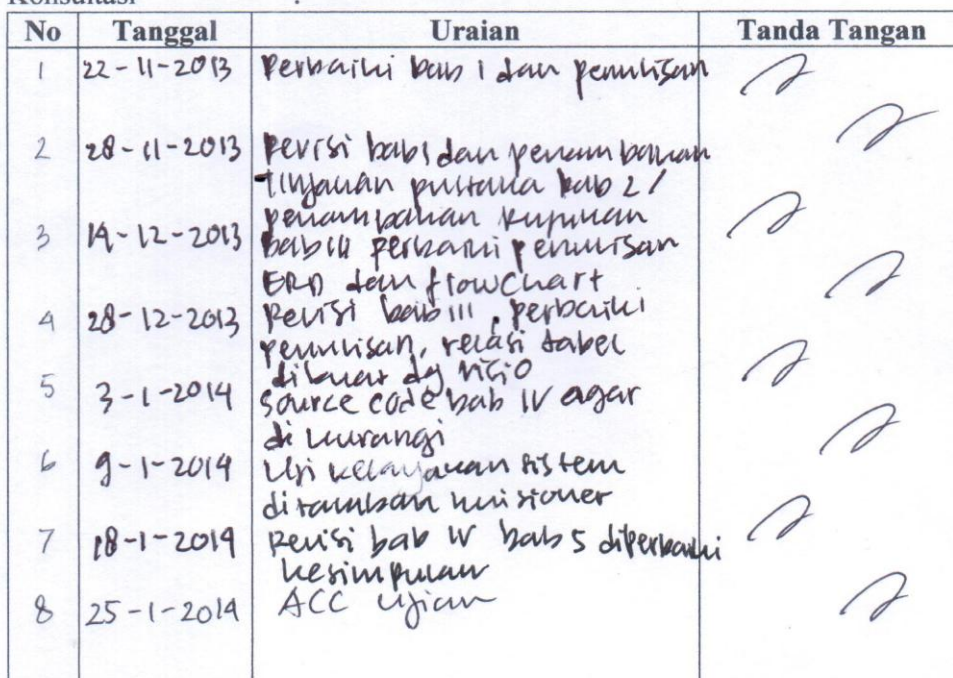 Konsultasi :
No Tanggal Uraian Tanda Tangan
1 22-11-2013 Perbaiki bab 1 dan penulisan
2 28-11-2013 Revisi bab 1 dan penambahan
tinjauan pustaka bab 2 /
penambahan rujukan
3 14-12-2013 bab III perbaiki penulisan
ERD dan flowchart
4 28-12-2013 Revisi bab III, perbaiki
penulisan, relasi tabel
dibuat dg visio
5 3-1-2014 source code bab IV agar
dikurangi
6 9-1-2014 Uji kelayakan sistem
ditambah kuisioner
7 18-1-2014 Revisi bab IV bab 5 diperbaiki
kesimpulan
8 25-1-2014 ACC Ujian